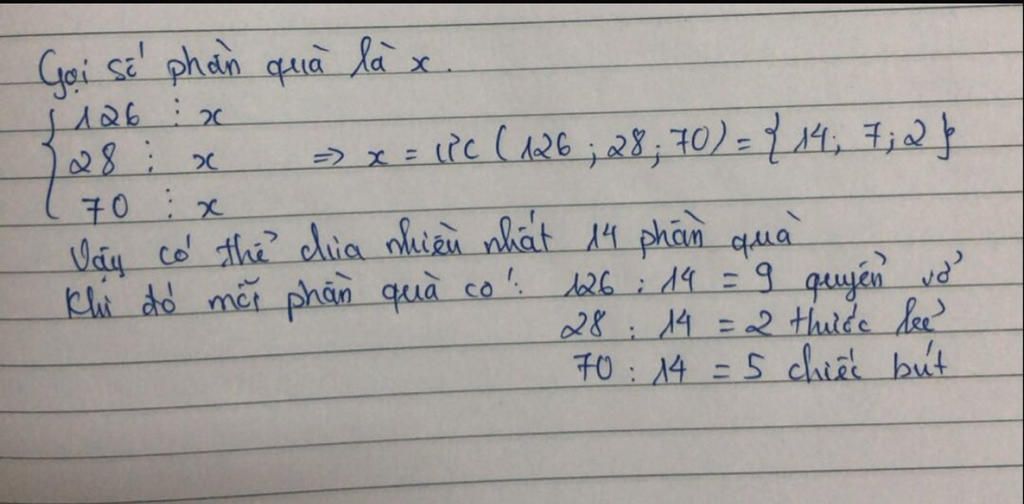 Gọi số phần quà là x.
126 ⋮ x
28 ⋮ x => x = ƯC (126 ; 28 ; 70) = { 14; 7; 2 }
70 ⋮ x
Vậy có thể chia nhiều nhất 14 phần quà
Khi đó mỗi phần quà có: 126 : 14 = 9 quyển vở
28 : 14 = 2 thước kẻ
70 : 14 = 5 chiếc bút